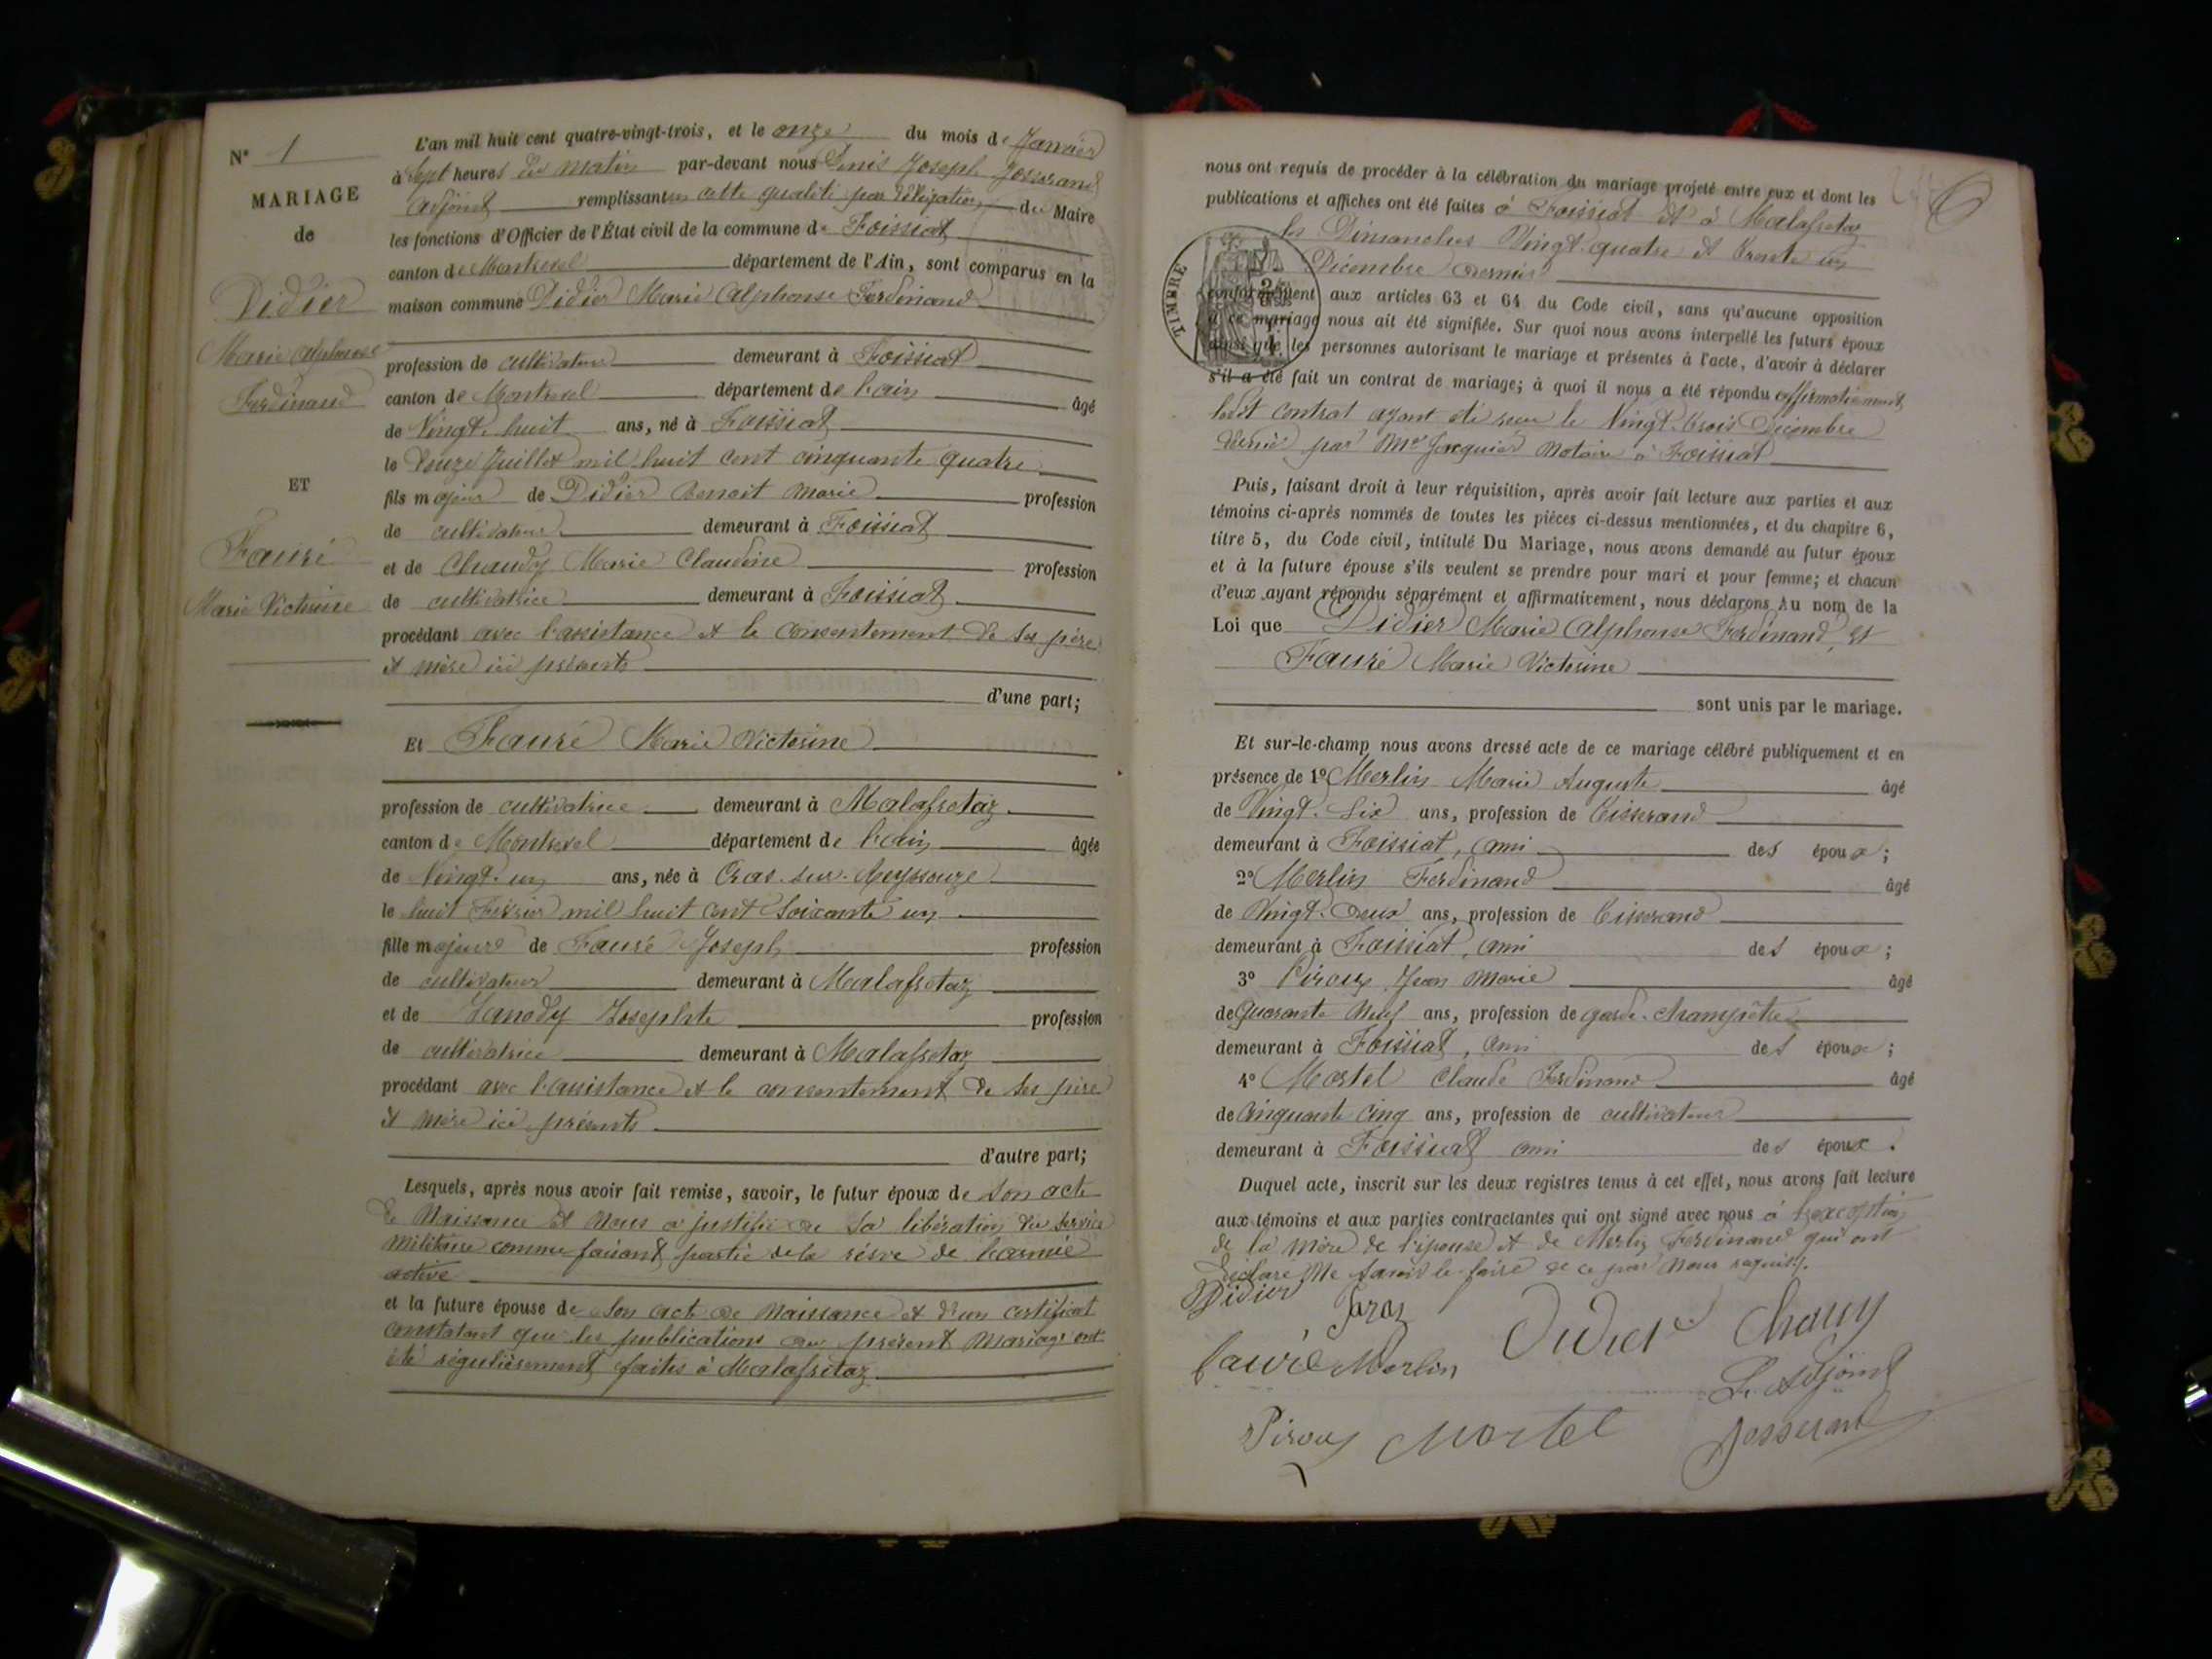 N° 1
MARIAGE
de
Didier
Marie Alphonse
Ferdinand
ET
Fauré
Marie Victorine
L'an mil huit cent quatre-vingt-trois, et le onze du mois de Janvier
à Sept heures du matin par-devant nous Denis Joseph Josserand
adjoint remplissant en cette qualité par délégation du Maire
les fonctions d'Officier de l'État civil de la commune de Foissiat
canton de Montrevel département de l'Ain, sont comparus en la
maison commune Didier Marie Alphonse Ferdinand
profession de cultivateur demeurant à Foissiat
canton de Montrevel département de l'ain âgé
de Vingt huit ans, né à Foissiat
le douze Juillet mil huit cent cinquante quatre
fils majeur de Didier Benoit Marie profession
de cultivateur demeurant à Foissiat
et de Chaudy Marie Claudine profession
de cultivatrice demeurant à Foissiat
procédant avec l'assistance et le consentement de ses père
et mère ici présents
d'une part;
Et Fauré Marie Victorine
profession de cultivatrice demeurant à Malafretaz
canton de Montrevel département de l'ain âgée
de Vingt un ans, née à Cras-sur-Reyssouze
le huit Février mil huit cent soixante un
fille majeure de Fauré Joseph profession
de cultivateur demeurant à Malafretaz
et de Josephte profession
de cultivatrice demeurant à Malafretaz
procédant avec l'assistance et le consentement de ses père
et mère ici présents
d'autre part;
Lesquels, après nous avoir fait remise, savoir, le futur époux de son acte
de Naissance et nous a justifié de sa libération du service
militaire comme faisant partie de la résrve de l'armée
active
et la future épouse de son acte de Naissance et d'un certificat
constatant que les publications du présent Mariage ont
été régulièrement faites à Malafretaz
nous ont requis de procéder à la célébration du mariage projeté entre eux et dont les
publications et affiches ont été faites à Foissiat et à Malafretaz
les Dimanches Vingt-quatre et trente un
Décembre dernier
conformément aux articles 63 et 64 du Code civil, sans qu'aucune opposition
à ce mariage nous ait été signifiée. Sur quoi nous avons interpellé les futurs époux
ainsi que les personnes autorisant le mariage et présentes à l'acte, d'avoir à déclarer
s'il a été fait un contrat de mariage; à quoi il nous a été répondu affirmativement
ledit contrat ayant été reçu le Vingt-trois Décembre
dernier par Me Jacquier Notaire à Foissiat
TIMBRE
Puis, faisant droit à leur réquisition, après avoir fait lecture aux parties et aux
témoins ci-après nommés de toutes les pièces ci-dessus mentionnées, et du chapitre 6,
titre 5, du Code civil, intitulé Du Mariage, nous avons demandé au futur époux
et à la future épouse s'ils veulent se prendre pour mari et pour femme; et chacun
d'eux ayant répondu séparément et affirmativement, nous déclarons Au nom de la
Loi que Didier Marie Alphonse Ferdinand, et
Fauré Marie Victorine
sont unis par le mariage.
Et sur-le-champ nous avons dressé acte de ce mariage célébré publiquement et en
présence de 1° Merlin Marie Auguste âgé
de Vingt-Six ans, profession de Tisserand
demeurant à Foissiat, ami des époux;
2° Merlin Ferdinand âgé
de Vingt-Deux ans, profession de Tisserand
demeurant à Foissiat, ami des époux;
3° Piroux Jean Marie âgé
de Quarante Neuf ans, profession de garde-champêtre
demeurant à Foissiat, ami des époux;
4° Mortel Claude Ferdinand âgé
de Cinquante Cinq ans, profession de cultivateur
demeurant à Foissiat ami des époux.
Duquel acte, inscrit sur les deux registres tenus à cet effet, nous avons fait lecture
aux témoins et aux parties contractantes qui ont signé avec nous à l'exception
de la mère de l'épouse et de Merlin Ferdinand qui ont
déclaré Ne savoir le faire de ce par Nous requis.
Didier
Didier Chaudy
Fauré Merlin
L'Adjoint
Piroux Mortel Josserand